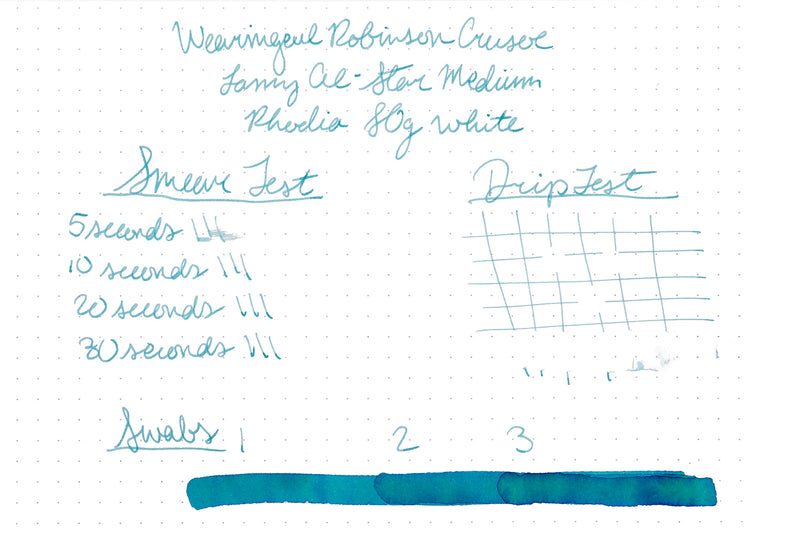 Wearingeul Robinson Crusoe
Lamy Al-Star Medium
Rhodia 80g White
Smear Test
Drip Test
5 seconds
10 seconds
20 seconds
30 seconds
Swabs 1 2 3